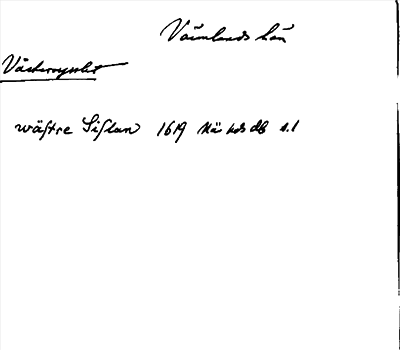 Värmlands län
Västersysslet
wästre Sißlan 1619 När hds db s.1